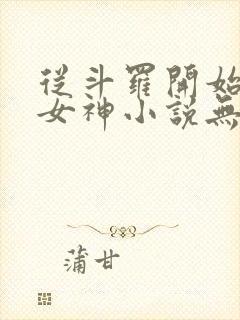 從斗羅開始
女神小說無
蒲甘